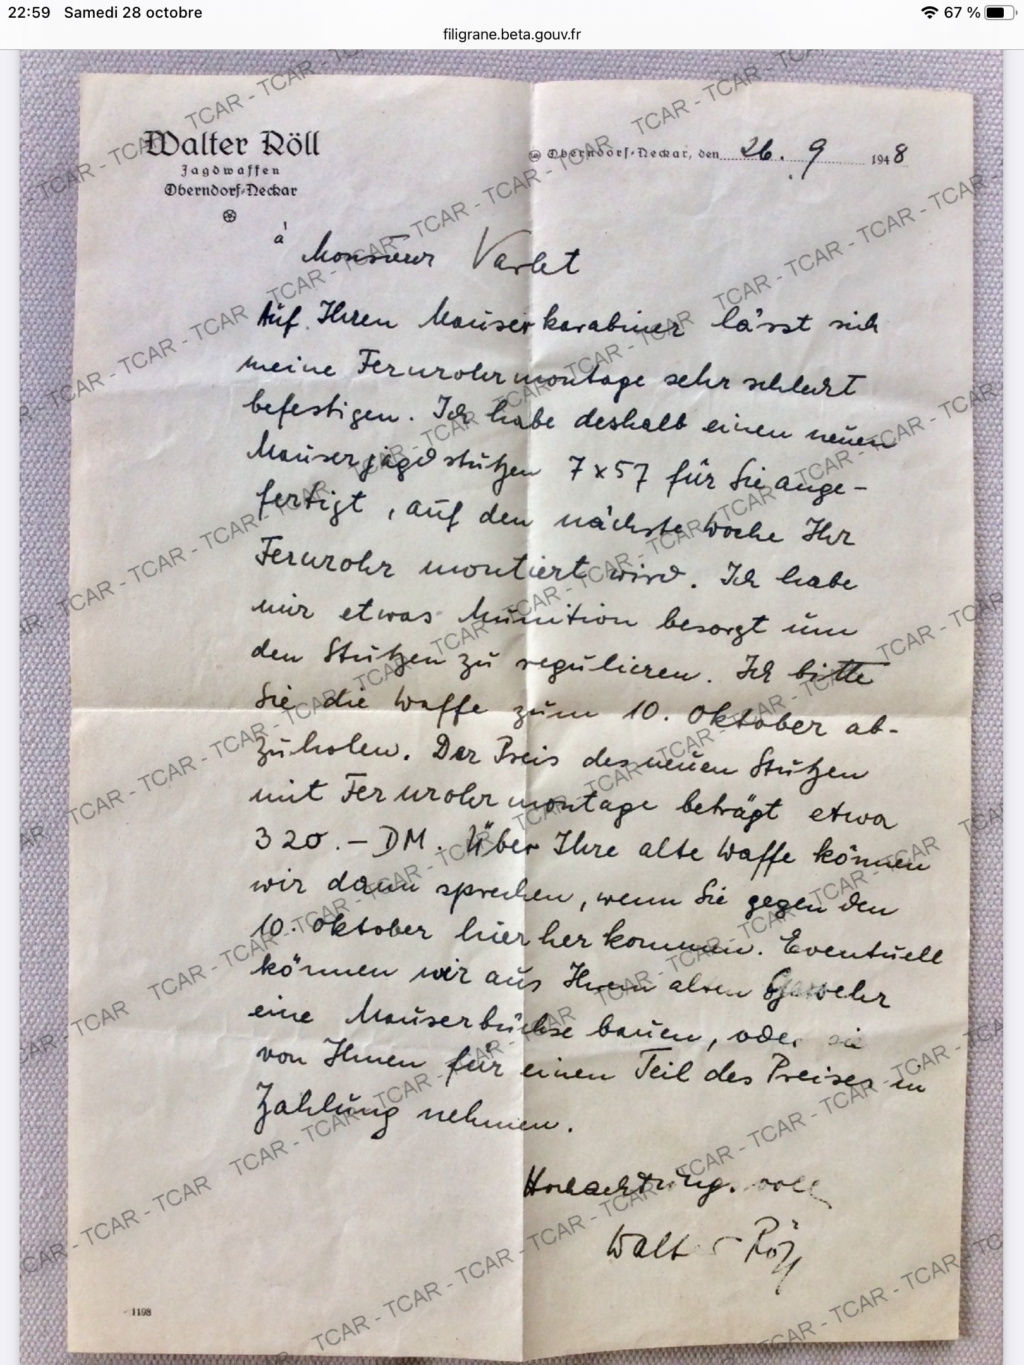 22:59 Samedi 28 octobre 67 %
filigrane.beta.gouv.fr
Walter Röll
Jagdwaffen
Oberndorf-Neckar
Oberndorf-Neckar, den 26. 9 1948
à Monsieur Varlet
Auf Ihren Mauserkarabiner lässt sich
meine Fernrohrmontage sehr schlecht
befestigen. Ich habe deshalb einen neuen
Mauserjagdstutzen 7x57 für Sie ange-
fertigt, auf den nächste Woche Ihr
Fernrohr montiert wird. Ich habe
mir etwas Munition besorgt um
den Stutzen zu regulieren. Ich bitte
Sie die Waffe zum 10. Oktober ab-
zuholen. Der Preis des neuen Stutzen
mit Fernrohrmontage beträgt etwa
320.- DM. Über Ihre alte Waffe können
wir dann sprechen, wenn Sie gegen den
10. Oktober hierher kommen. Eventuell
können wir aus Ihrem alten Gewehr
eine Mauserbüchse bauen, oder sie
von Ihnen für einen Teil des Preises in
Zahlung nehmen.
Hochachtungsvoll
Walter Röll
1198
TCAR - TCAR - TCAR - TCAR - TCAR